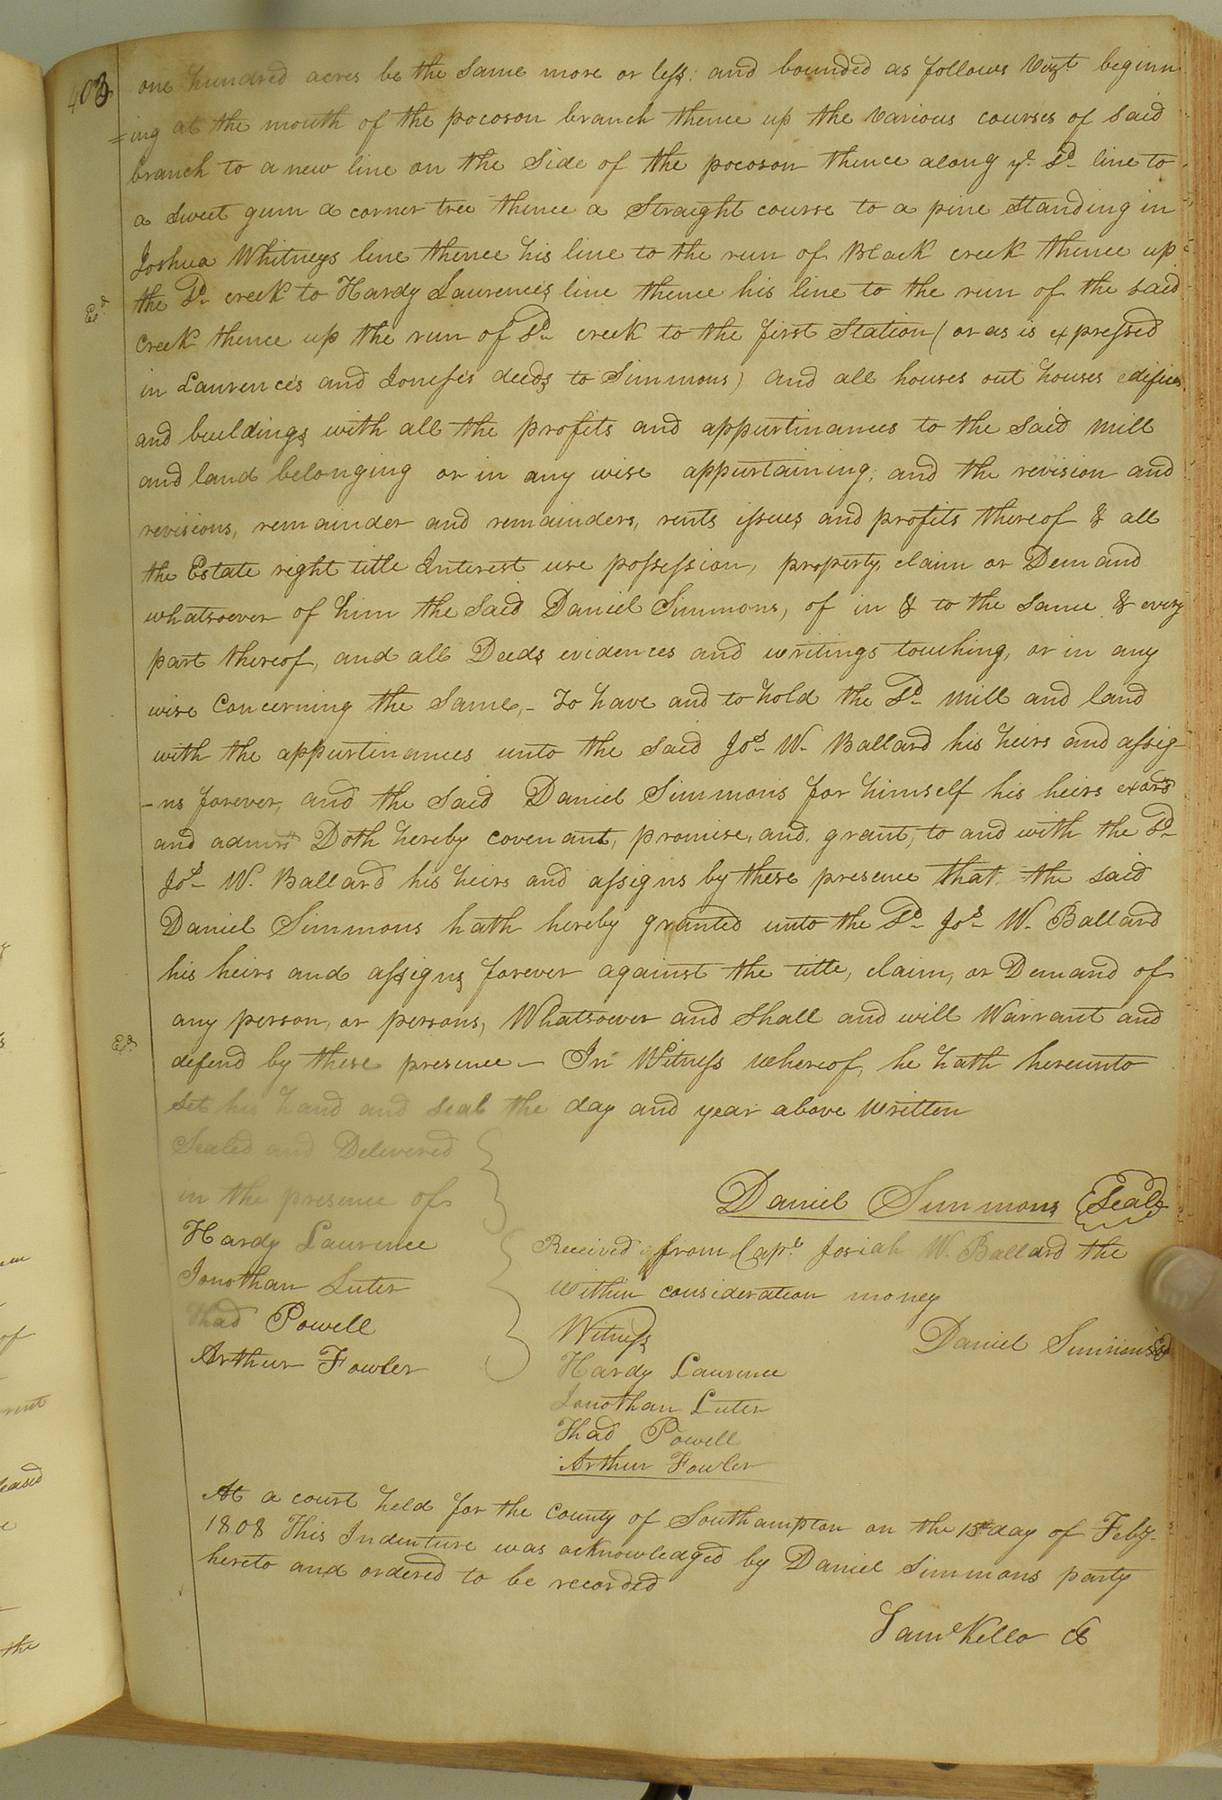 403
one hundred acres be the same more or less; and bounded as follows Vizt beginn
=ing at the mouth of the pocoson branch thence up the various courses of said
branch to a new line on the side of the pocoson thence along ye. sd. line to
a sweet gum a corner tree thence a Straight course to a pine standing in
Joshua Whitneys line thence his line to the run of Black creek thence up
the sd. creek to Hardy Laurences line thence his line to the run of the said
Exd
creek thence up the run of sd. creek to the first Station (or as is expressed
in Laurence's and Jones's deeds to Simmons) and all houses out houses edifices
and buildings with all the profits and appurtinances to the said mill
and land belonging or in any wise appurtaining; and the revision and
revisions, remainder and remainders, rents issues and profits thereof & all
the Estate right title Interest use possession, property claim or Demand
whatsoever of him the said Daniel Simmons, of in & to the same & every
part thereof, and all Deeds evidences and writings touching, or in any
wise Concerning the same,- To have and to hold the sd. mill and land
with the appurtinances unto the said Jos. W. Ballard his heirs and assig-
-ns forever, and the said Daniel Simmons for himself his heirs exors
and admrs Doth hereby covenant, promise, and grant, to and with the sd.
Jos. W. Ballard his heirs and assigns by these presence that the said
Daniel Simmons hath hereby granted unto the sd. Jos. W. Ballard
his heirs and assigns forever against the title, claim, or Demand of
any person, or persons, Whatsoever and shall and will Warrant and
Exd
defend by these presence - In Witness whereof, he hath hereunto
set his hand and seal the day and year above written
Sealed and Delivered
in the presence of
Daniel Simmons Seal
Hardy Laurence
Jonothan Luter
Thad Powell
Arthur Fowler
Received from Capt. Josiah W. Ballard the
within consideration money
Witness
Daniel Simmons
Hardy Laurence
Jonothan Luter
Thad Powell
Arthur Fowler
At a court held for the County of Southampton on the 15th day of Feby.
1808 This Indenture was acknowledged by Daniel Simmons party
hereto and ordered to be recorded
Saml Kello